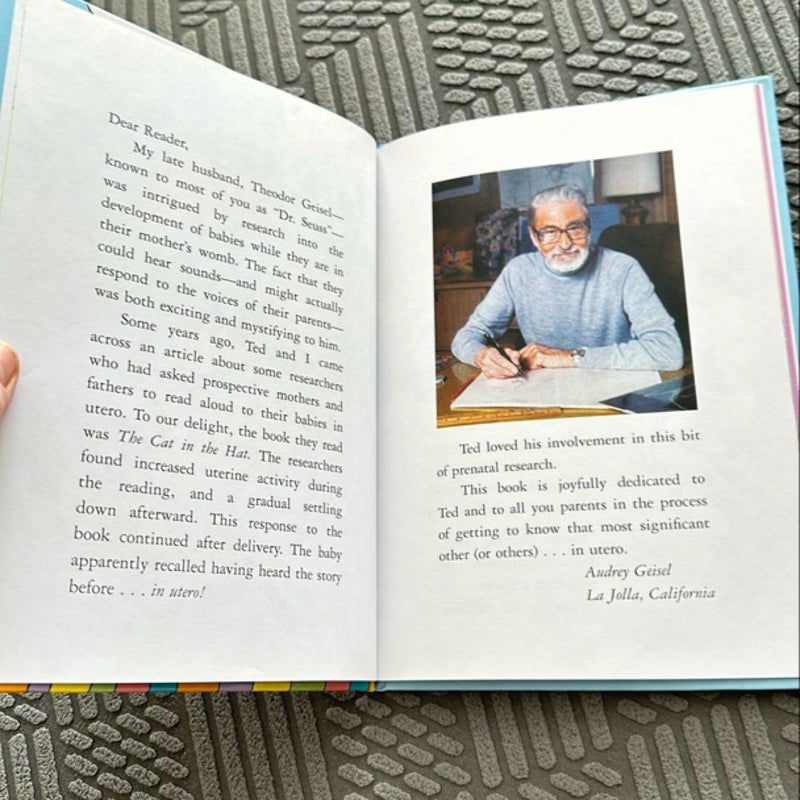 Dear Reader,
My late husband, Theodor Geisel—
known to most of you as "Dr. Seuss"—
was intrigued by research into the
development of babies while they are in
their mother's womb. The fact that they
could hear sounds—and might actually
respond to the voices of their parents—
was both exciting and mystifying to him.
Some years ago, Ted and I came
across an article about some researchers
who had asked prospective mothers and
fathers to read aloud to their babies in
utero. To our delight, the book they read
was The Cat in the Hat. The researchers
found increased uterine activity during
the reading, and a gradual settling
down afterward. This response to the
book continued after delivery. The baby
apparently recalled having heard the story
before . . . in utero!
Ted loved his involvement in this bit
of prenatal research.
This book is joyfully dedicated to
Ted and to all you parents in the process
of getting to know that most significant
other (or others) . . . in utero.
Audrey Geisel
La Jolla, California